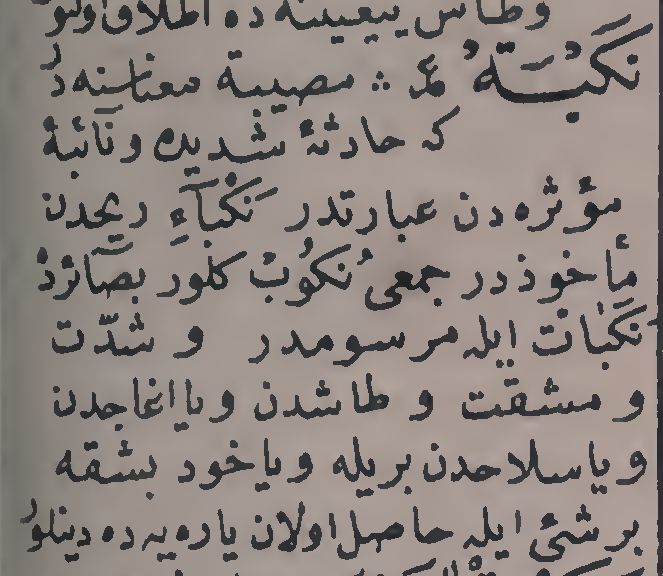 وطاش بیعینه ده اطلاق اولنو
نَكْبَةٌ عر ؞ مصیبة معناسنه در
که حادثۀ شدیده و نآئبۀ
مؤثره دن عبارتدر نَكْبَآءِ ریحدن
مأخوذدر جمعی نُكُوبْ كلور بصآئرده
نَكَبَاتْ ایله مرسومدر و شدّت
و مشقت و طاشدن ویا اغاجدن
ویا سلاحدن بریله ویاخود بشقه
بر شئ ایله حاصل اولان یاره یه ده دینلور